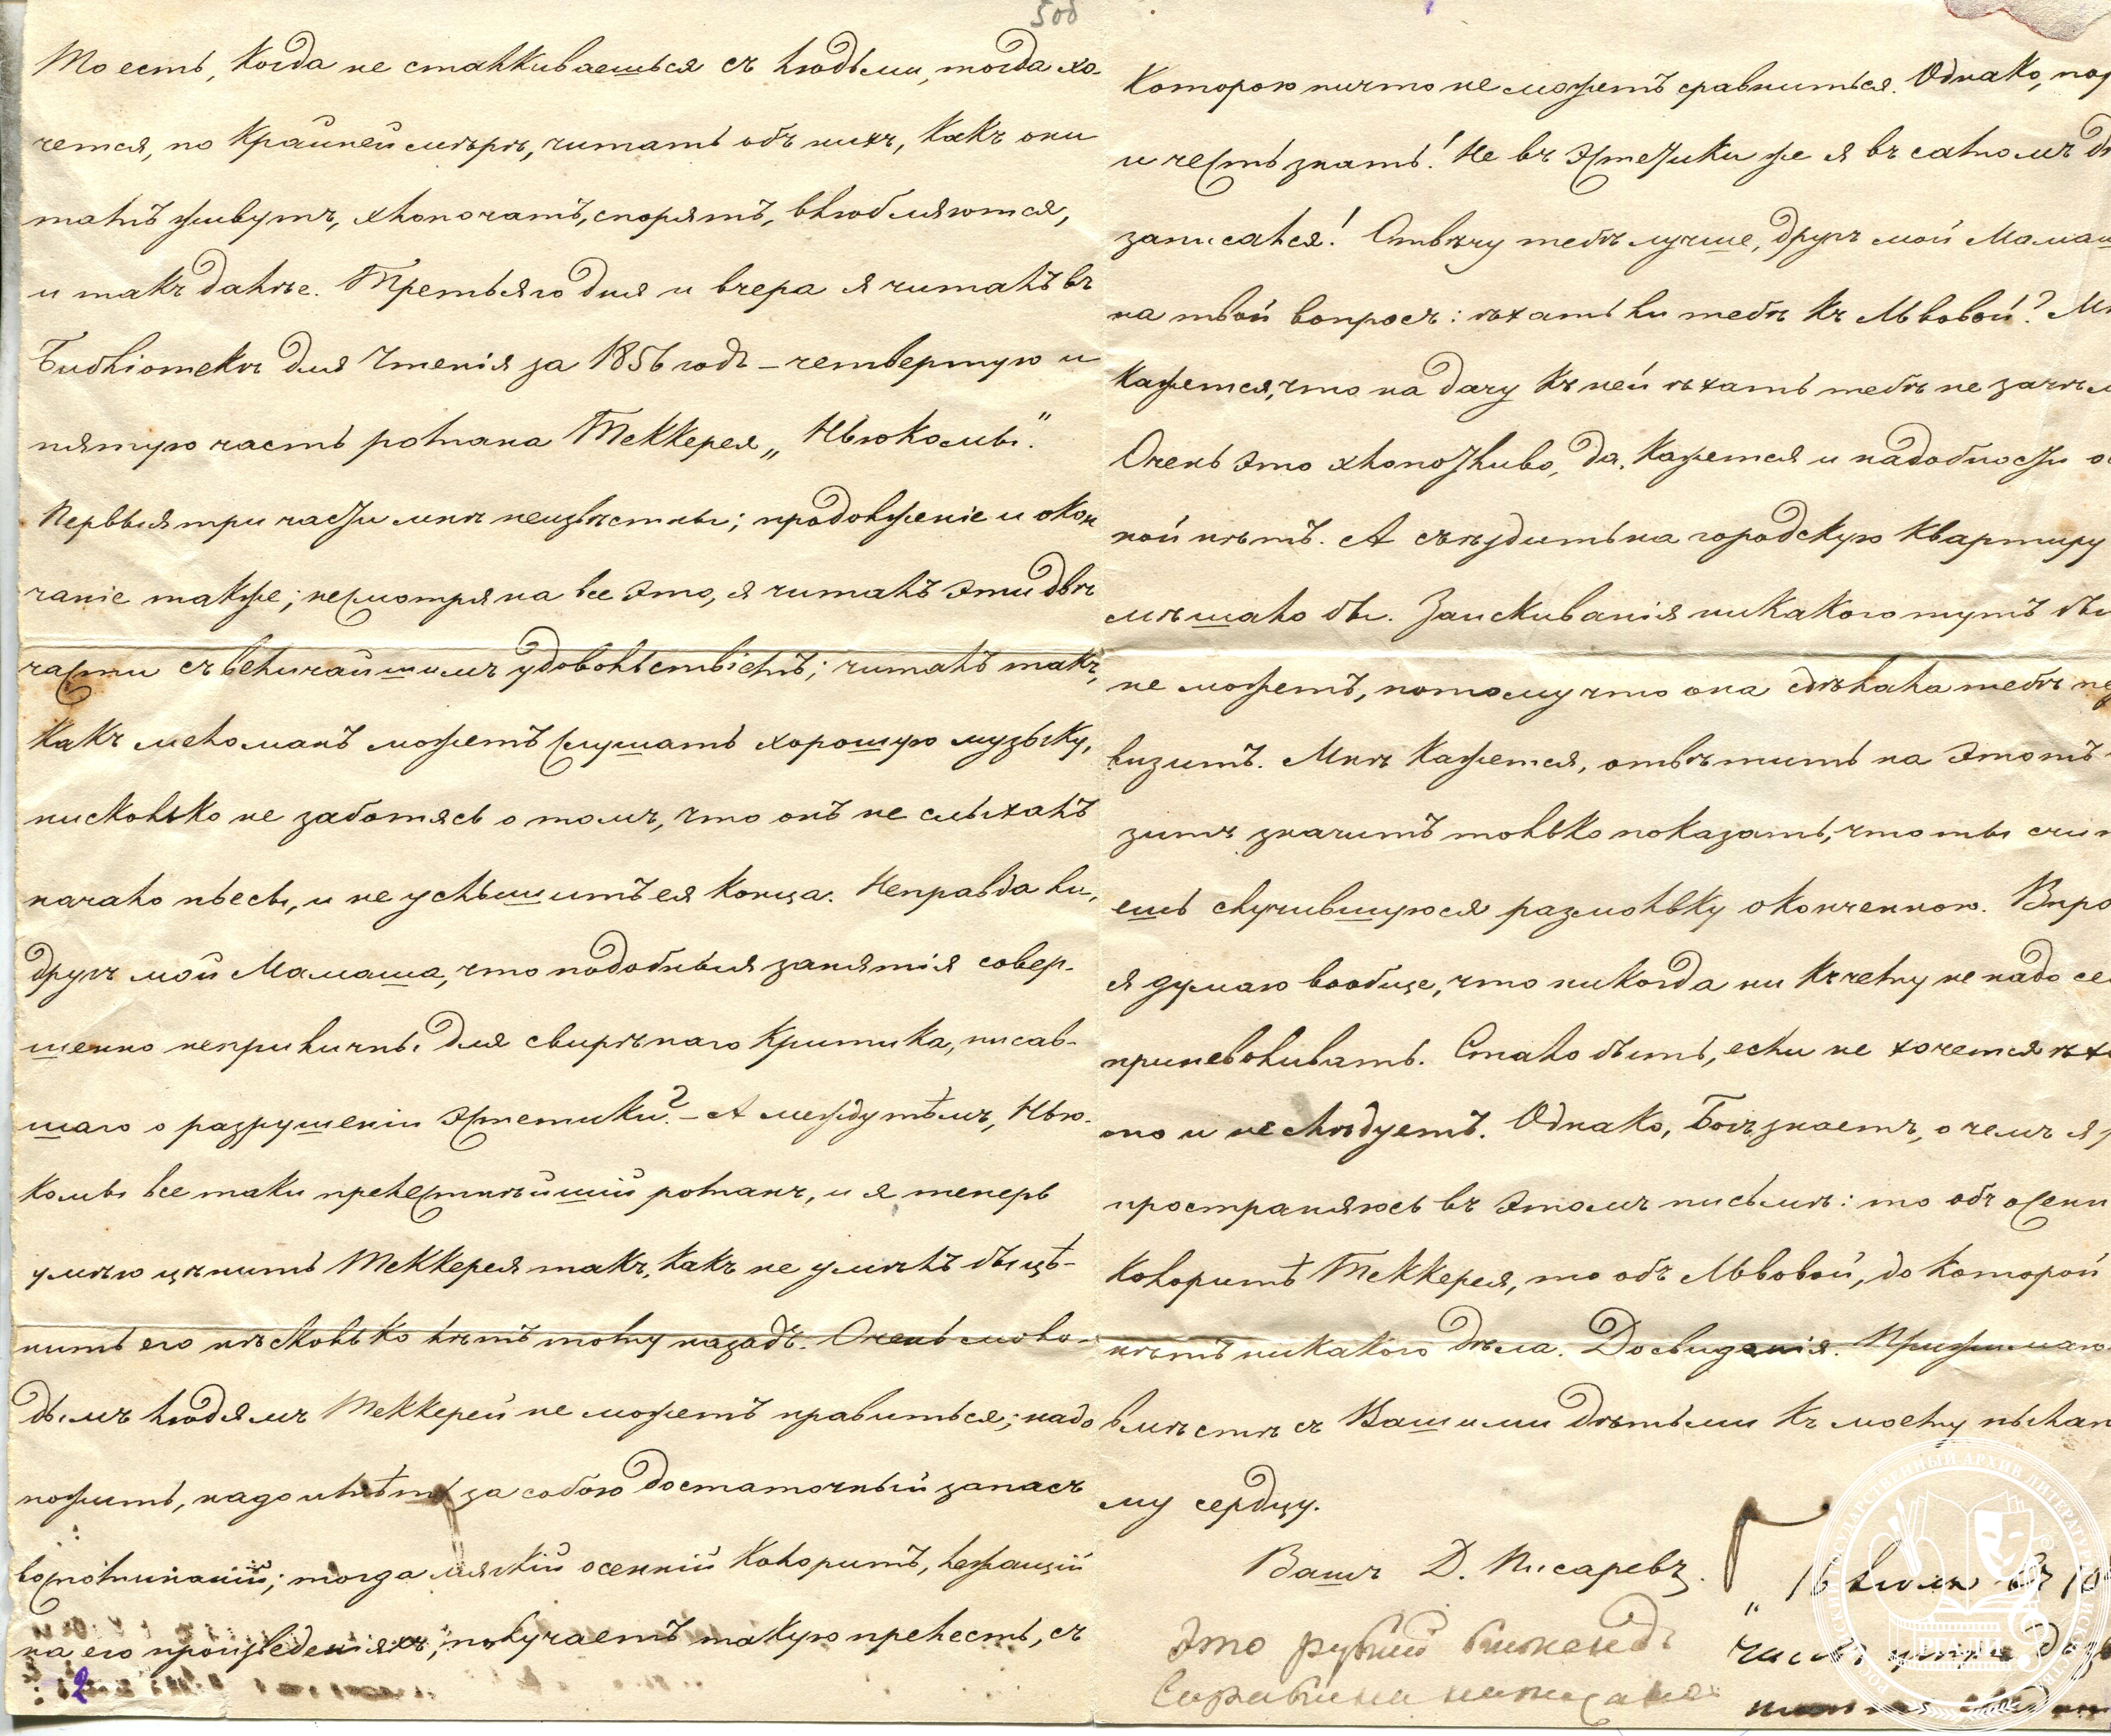 508
То есть, когда не сталкиваешься съ людьми, тогда хо-
чется, по крайней мѣрѣ, читать объ нихъ, какъ они
тамъ живутъ, хлопочатъ, спорятъ, влюбляются,
и такъ далѣе. Третьяго дня и вчера я читалъ въ
Библіотекѣ для Чтенія за 1856 годъ – четвертую и
пятую часть романа Теккерея „Ньюкомы".
Первыя три части мнѣ неизвѣстны; продолженіе и окон
чаніе также; несмотря на все это, я читалъ эти двѣ
части съ величайшимъ удовольствіемъ; читалъ такъ,
какъ меломанъ можетъ слушать хорошую музыку,
нисколько не заботясь о томъ, что онъ не слыхалъ
начало пьесы, и не услышитъ ея конца. Неправда ли,
другъ мой Мамаша, что подобныя занятія совер-
шенно неприличны для свирѣпаго критика, писав-
шаго о разрушеніи эстетики? – А между тѣмъ, Нью-
комы все таки прелестнѣйшій романъ, и я теперь
умѣю цѣнить Теккерея такъ, какъ не умѣлъ бы цѣ-
нить его нѣсколько лѣтъ тому назадъ. Очень моло-
дымъ людямъ Теккерей не можетъ нравиться; надо
пожить, надо имѣть за собою достаточный запасъ
воспоминаній; тогда мягкій осенній колоритъ, лежащій
на его произведеніяхъ, получаетъ такую прелесть, съ
2
которою ничто не можетъ сравниться. Однако, пор
и честь знать! Не въ эстетики же я въ самомъ дѣ
записался! Отвѣчу тебѣ лучше, другъ мой Мамаш
на твой вопросъ: ѣхать ли тебѣ къ Львовой? Мн
кажется, что на дачу къ ней ѣхать тебѣ не зачѣм
Очень это хлопотливо, да, кажется и надобности ос
ной нѣтъ. А съѣздить на городскую квартиру
мѣшало бы. Заискиванія никакого тутъ бы
не можетъ, потому что она сдѣлала тебѣ пе
визитъ. Мнѣ кажется, отвѣтить на этотъ
зитъ значитъ только показать, что ты счит
ешь случившуюся размолвку оконченною. Впро
я думаю вообще, что никогда ни къ чему не надо се
приневоливать. Стало быть, если не хочется ѣха
оно и не слѣдуетъ. Однако, Богъ знаетъ, о чемъ я р
пространяюсь въ этомъ письмѣ: то объ осенн
колоритѣ Теккерея, то объ Львовой, до которой
нѣтъ никакого дѣла. До свиданія. Прижимаю
вмѣстѣ съ Вашими дѣтьми къ моему пылаю
му сердцу.
Вашъ Д. Писаревъ.
„16 Іюля въ 10
часовъ утра
Это рукой
РГАЛИ
РОССИЙСКИЙ ГОСУДАРСТВЕННЫЙ АРХИВ ЛИТЕРАТУРЫ И ИСКУССТВА